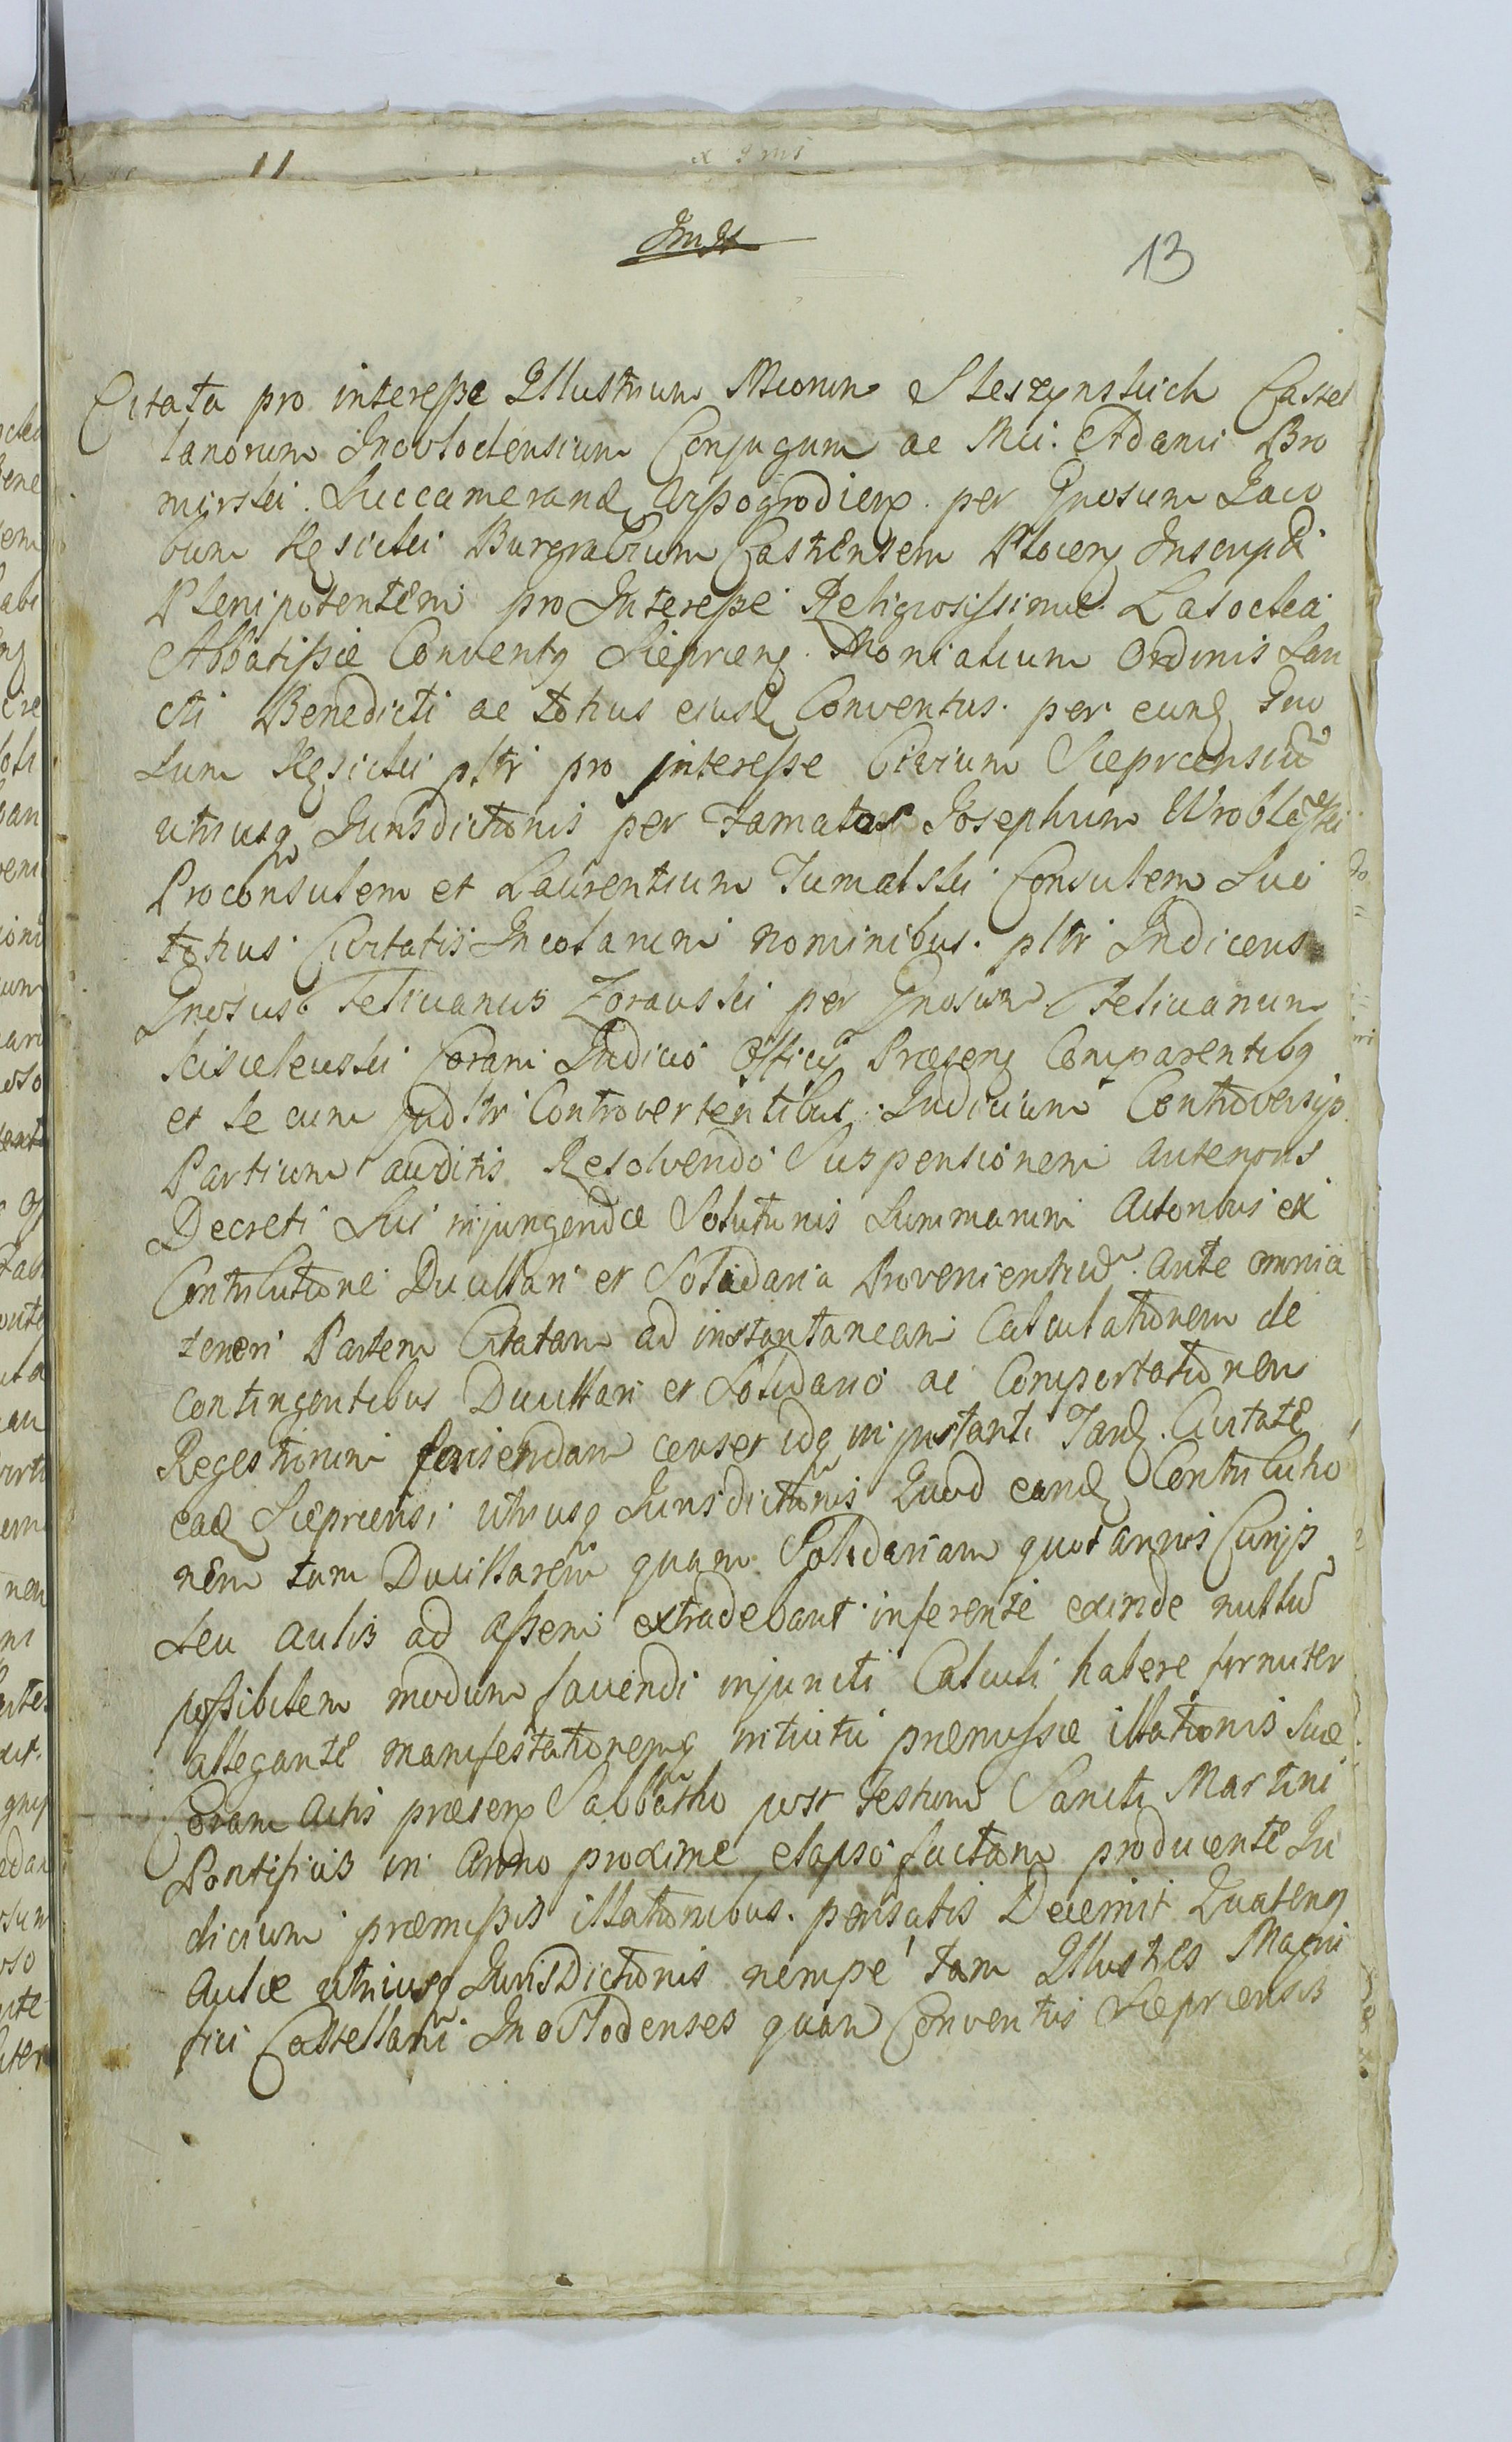 13
Citata pro interesse Illustrium Mcorum Steszynskich Castel
lanorum Inovloclensium Conjugum ac Mci. Adami Bro
mirski Succamerand Wyszogrodiens. per Gnosum Jaco
bum Kęsicki Burgrabium Castrensem Plocens Inscrupti
Plenipotentem pro Interesse Religiosissimæ Lasockea
Abbatissæ Conventq Siepriens Monialium Ordinis San
cti Benedicti ac totius ejusd Conventus. per eund Gno
sum Kęsicki pltr pro interesse Civium Siepriensiu
utriusq Jurisdictionis per Famatos Josephum Wroblewski
Proconsulem et Laurentium Tumalski Consulem Suo
totius Civitatis Incolarum nominibus. pltr Judiceus
Gnosus Felicianus Zorawski per Gnosum Felicianum
Coram Judicio Officij Præsens Comparentibq
et se cum judltr Controvertentibus. Judicium Controversijs
Partium auditis Resolvendo Suspensionem anterioris
Decreti Sui injungendæ Solutionis Summarum Actoribus ex
Contributione Ducillari et Solidaria Provenientiu ante omnia
teneri Partem Citatam ad instantaneam Calculationem de
contingentibus Ducillari et Solidario ac Comportationem
Regestrorum faciendam censet idq in instanti Tand. Civitate
ead Siepriensi utriusq Jurisdictionis Quod eand Contributio
nem tam Ducillarem quam Solidariam quotannis Curijs
seu Aulis ad assem extradebant inferente exinde nullu
possibilem modum faciendi injuncti Calculi habere firmiter
allegante manifestationemq intuitu præmissæ illationis suæ
Coram Actis præsens Sabbatho post Festum Sancti Martini
Pontificis in Anno proxime elapso factam producente Ju
dicium præmissis illationibus. pensatis Decernit Quatenq
Aulæ utriusq Jurisdictionis nempe tam Illustres Magni
fici Castellani Inovlodenses quam Conventus Siepriensis